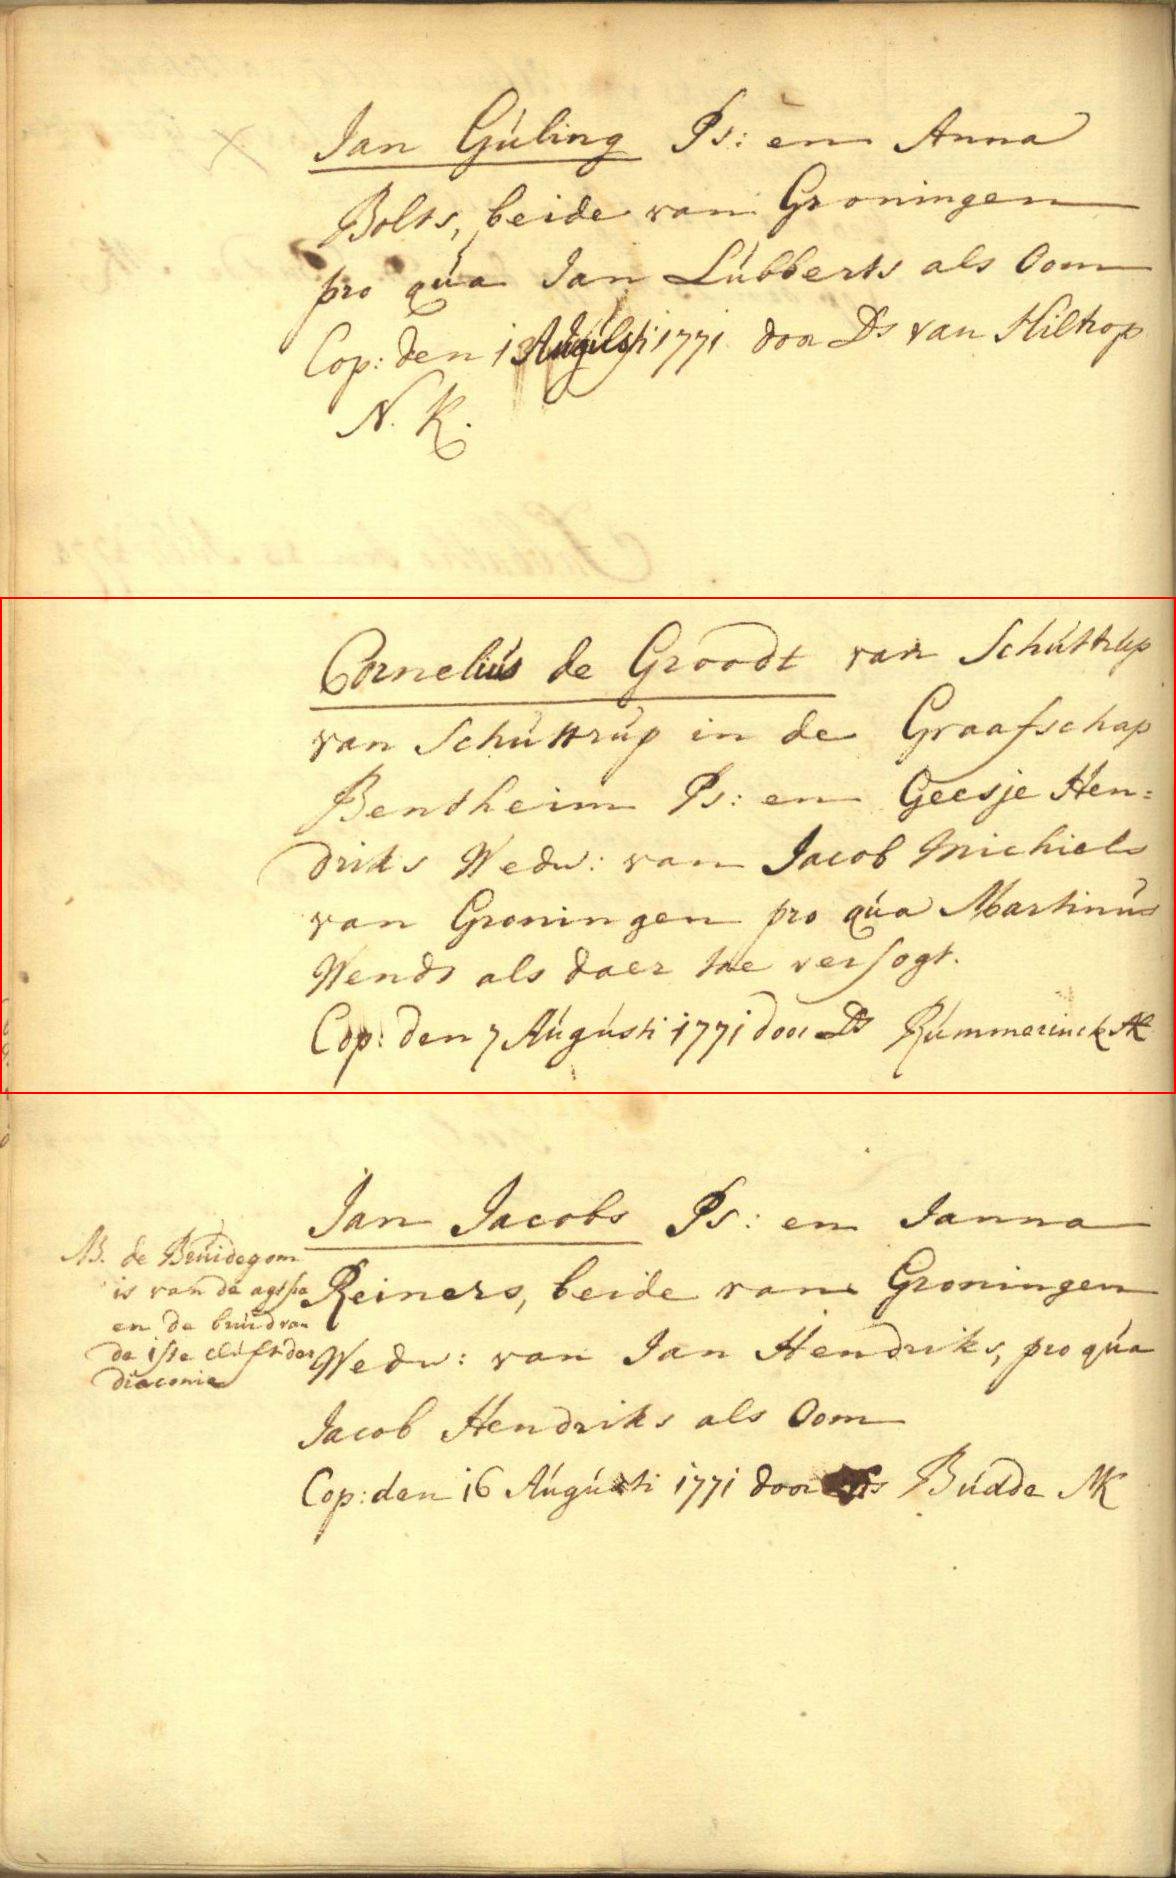 Jan Gúling Ps: en Anna
Bolts, beide van Groningen
pro qúa Jan Lúbberts als Oom
Cop: den 1 Aúgústi 1771 door Ds van Hiltrop
N. K.
Corneliús de Groodt van Schúttrúp
van Schúttrúp in de Graafschap
Bentheim Ps: en Geesje Hen=
driks Wedw: van Jacob Michiels
van Groningen pro qúa Martinús
Wendt als daer toe versogt.
Cop: den 7 Aúgústi 1771 door Ds Rúmmerinck AK
Jan Jacobs Ps: en Janna
Reiners, beide van Groningen
Wedw: van Jan Hendriks, pro qúa
Jacob Hendriks als Oom
Cop: den 16 Aúgústi 1771 door Ds Búdde NK
NB. de Brúidegom
is van de agtste
en de brúid van
de 1ste clúft der
diaconie